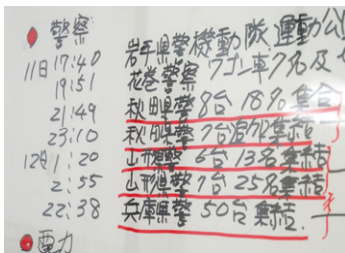 警察
岩手県警機動隊、運動公
11日 17:40
花巻警察 7台車7名及
19:51
21:49 秋田県警 8台 18名集合
23:10 秋田県警 7台追加集結
12日 1:20 山形県警 6台 13名集結
2:55 山形県警 7台 25名集結
22:38 兵庫県警 50台 集結
電力